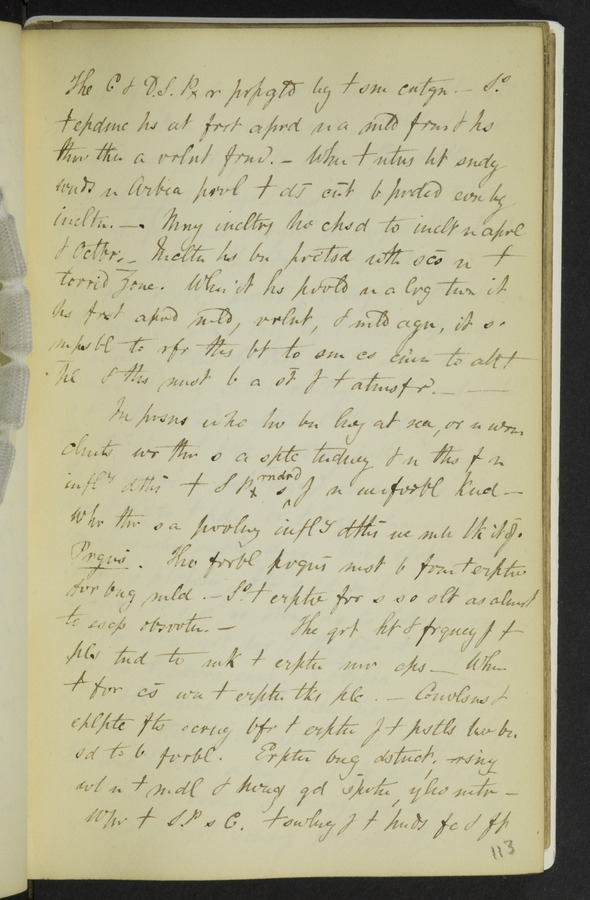 The C & D.S. Px r prpgtd by t sm cntgn. — So
t epdmc hs at frst aprd n a mld frm & hs
thn a vrlnt frm. — Whn t ntns ht sndy
wnds n Arbia prvl t ds cnt b prdcd evn by
incltn. — Mny incltrs hv chsd to inclt n aprl
& Octbr. — Incltn hs bn prctsd wth scs n t
torrid Zone. Whn it hs prvld n a lrg twn it
hs frst aprd mld, vrlnt, & mld agn, it s
mpsbl to rfr ths bt to sm cs cmn to all t
ple & ths mst b a st f t atmsfr. —
In prsns who hv bn lng at sea, or n wrm
clmts wr thr s a sptc tndncy & n ths f n
infl^y dths t S Px s rndrd f n unfvrbl knd —
whr thr s a prvlng infl^y dths we mk lk it f.
Prgns. Th fvrbl prgns mst b frm t erptn
fvr bng mld. — So t erptv fvr s so slt as almst
to escp obsrvtn. — The grt ht & frquncy f t
pls tnd to mk t erptn mr cps — Whn
t fvr cs wn t erptn tks plc. — Convlsns &
eplptc fts ocrng bfr t erptn f t pstls hv bn
sd to b fvrbl. Erptn bng dstnct, rsng
wl n t mdl & hvng gd sptn, ylw mtr —
Whr t S.P. s C. t swlng f t hnds fc & ft
113